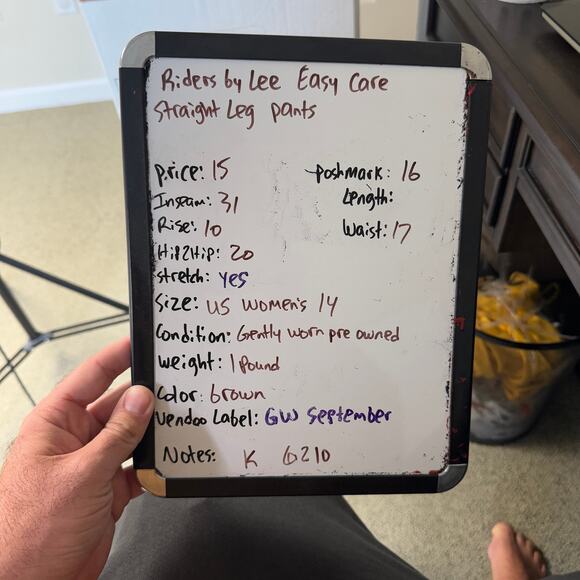 Riders by Lee Easy Care
Straight Leg pants
price: 15
poshmark: 16
Inseam: 31
Length:
Rise: 10
Waist: 17
Hip2Hip: 20
stretch: yes
Size: US Women's 14
Condition: Gently worn pre owned
weight: 1 Pound
Color: brown
Vendoo Label: GW September
Notes: K 6210